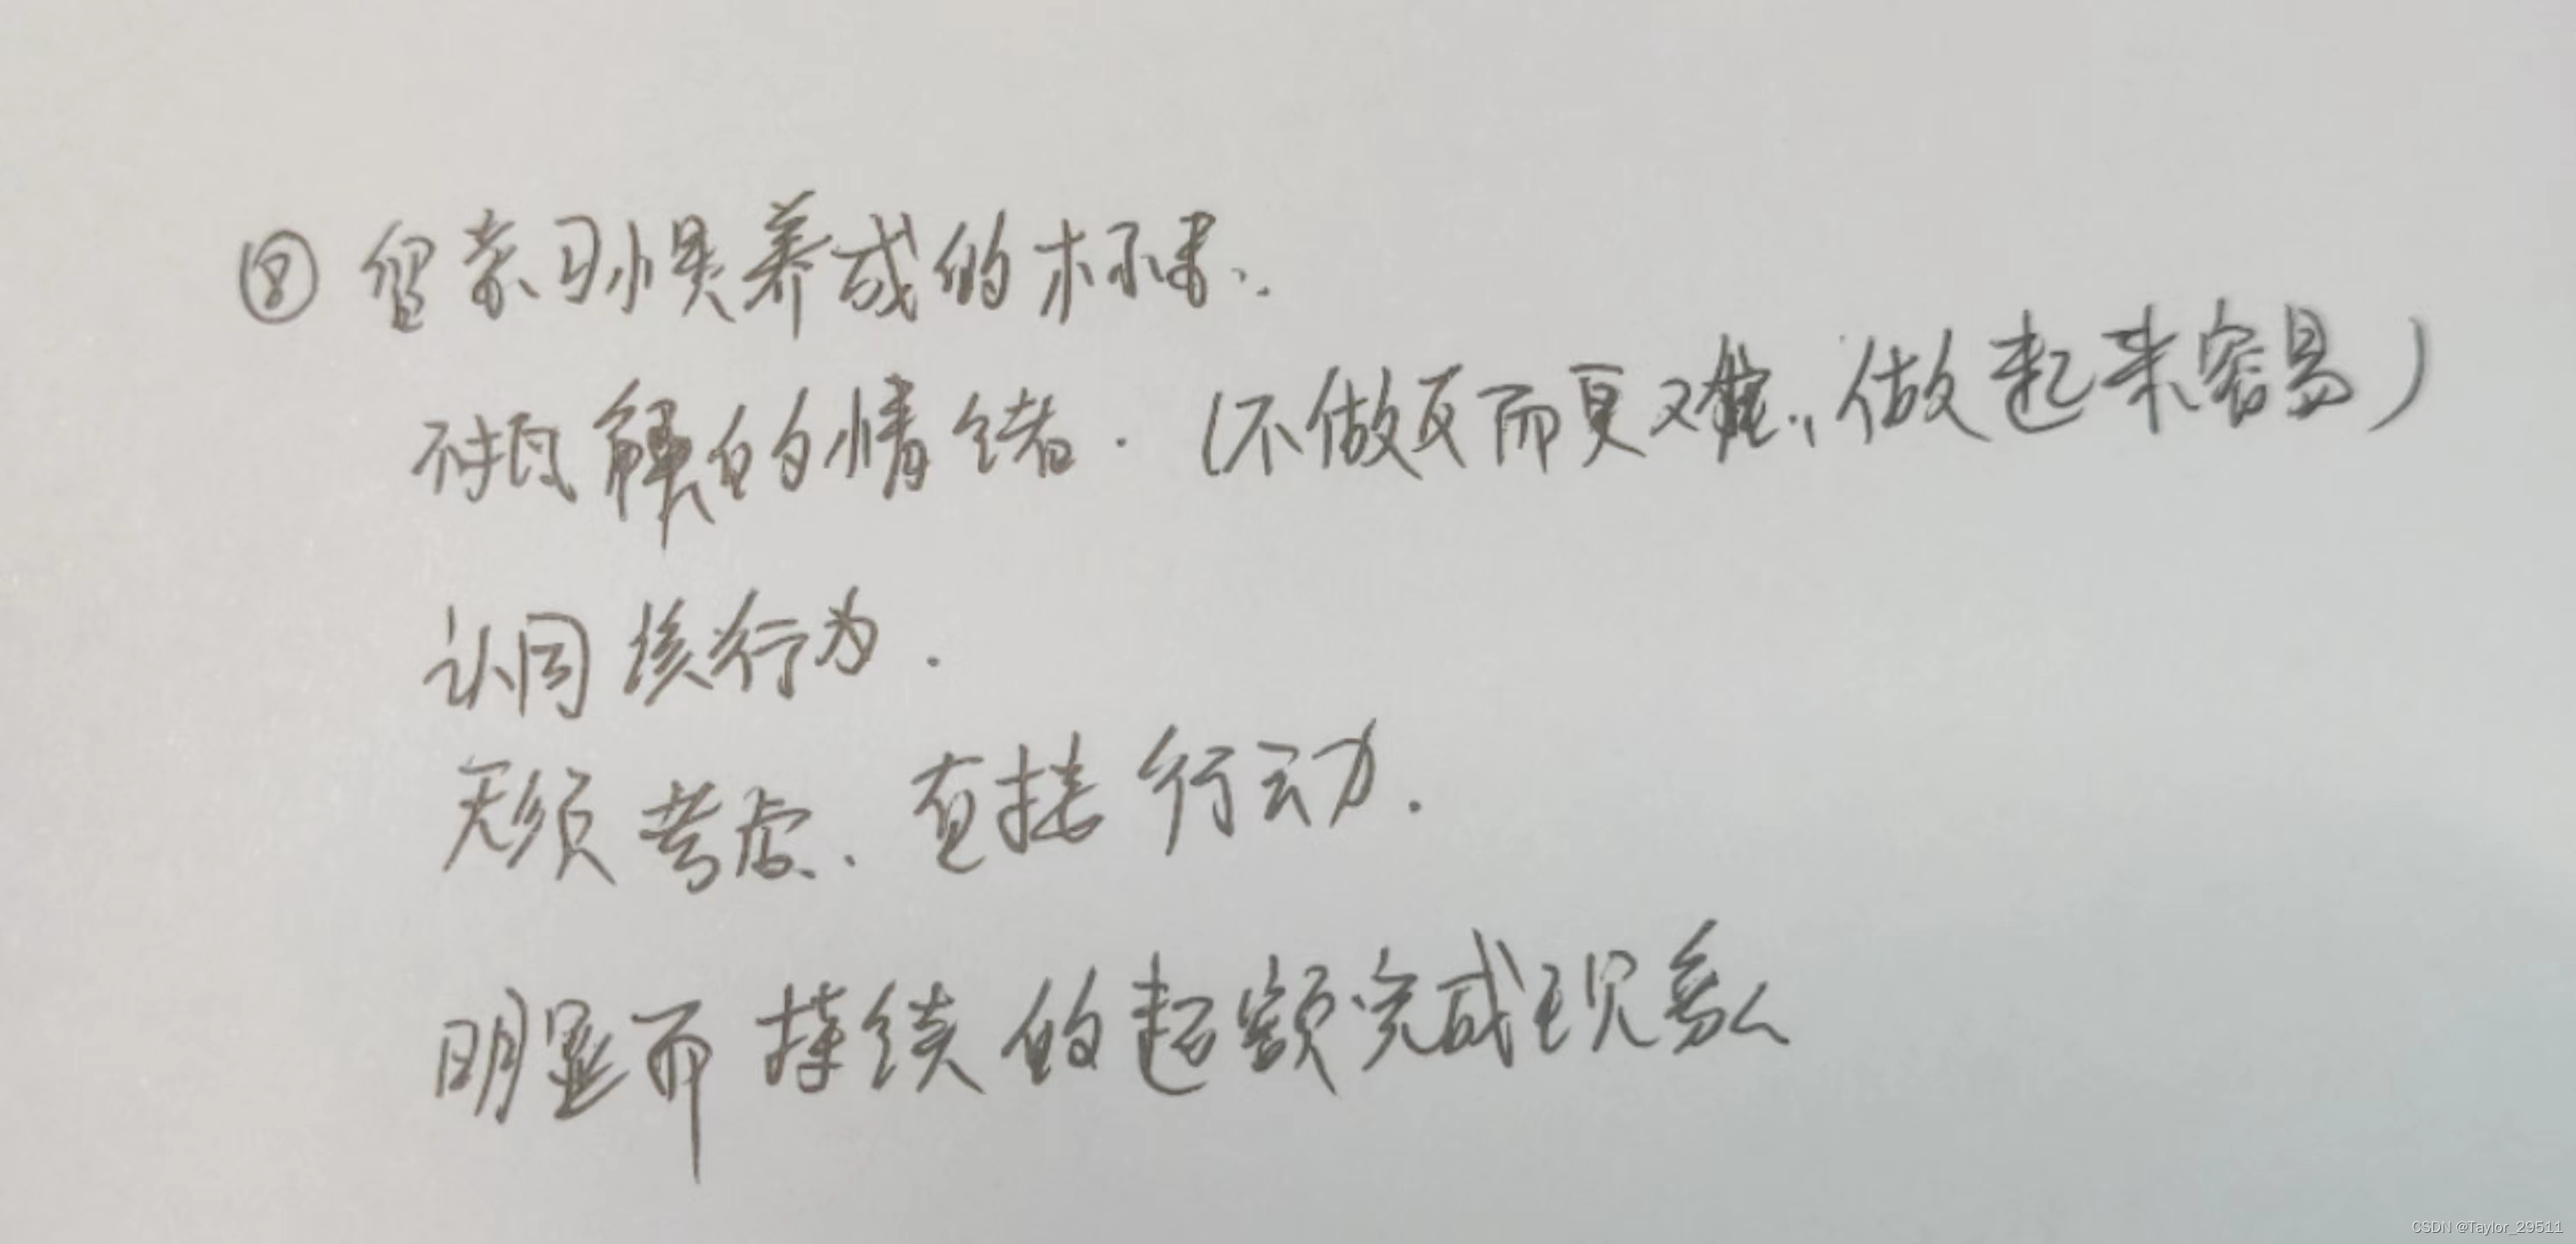 ⑧ 留意习惯养成的标志.
不抵触的情绪.(不做反而更难,做起来容易)
认同该行为.
无须考虑.直接行动.
明显而持续的超额完成现象
CSDN @Taylor_29511